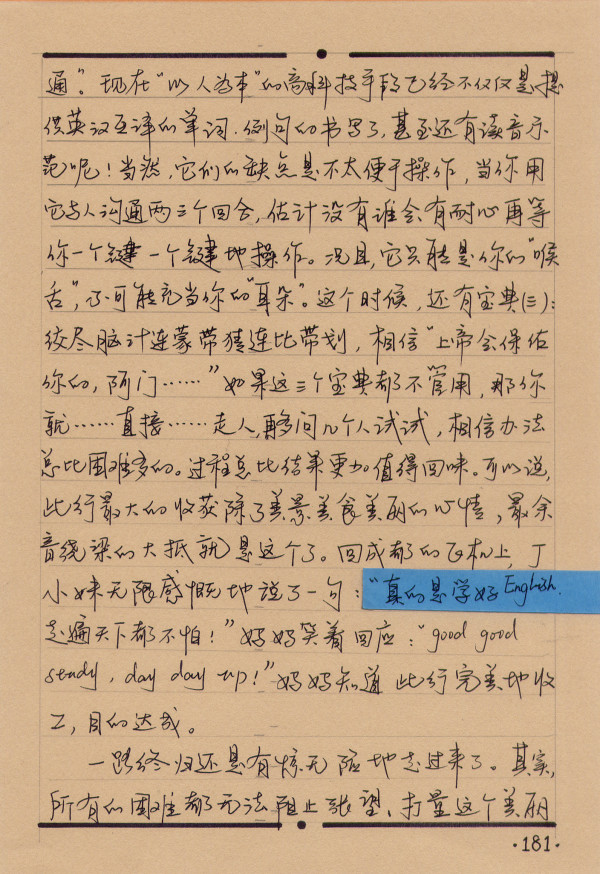 通”。现在“以人为本”的高科技手段已经不仅仅是提
供英汉互译的单词、例句的书写了,甚至还有读音示
范呢!当然,它们的缺点是不太便于操作,当你用
它与人沟通两三个回合,估计没有谁会有耐心再等
你一个键一个键地操作。况且,它只能是你的“喉
舌”,不可能充当你的“耳朵”。这个时候,还有宝典(三):
绞尽脑汁连蒙带猜连比带划,相信“上帝会保佑
你的,阿门……”如果这三个宝典都不管用,那你
就……直接……走人,再多问几个人试试,相信办法
总比困难多的。过程总比结果更加值得回味。可以说,
此行最大的收获除了美景美食美丽的心情,最余
音绕梁的大抵就是这个了。回成都的飞机上,丁
小妹无限感慨地说了一句:“真的是学好English.
走遍天下都不怕!”妈妈笑着回应:“good good
study, day day up!”妈妈知道此行完美地收
工,目的达成。
一路终归还是有惊无险地走过来了。其实,
所有的困难都无法阻止张望、打量这个美丽
·181·